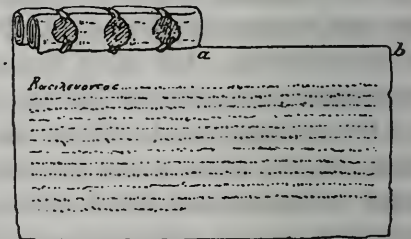 a b
Βασιλευοντος